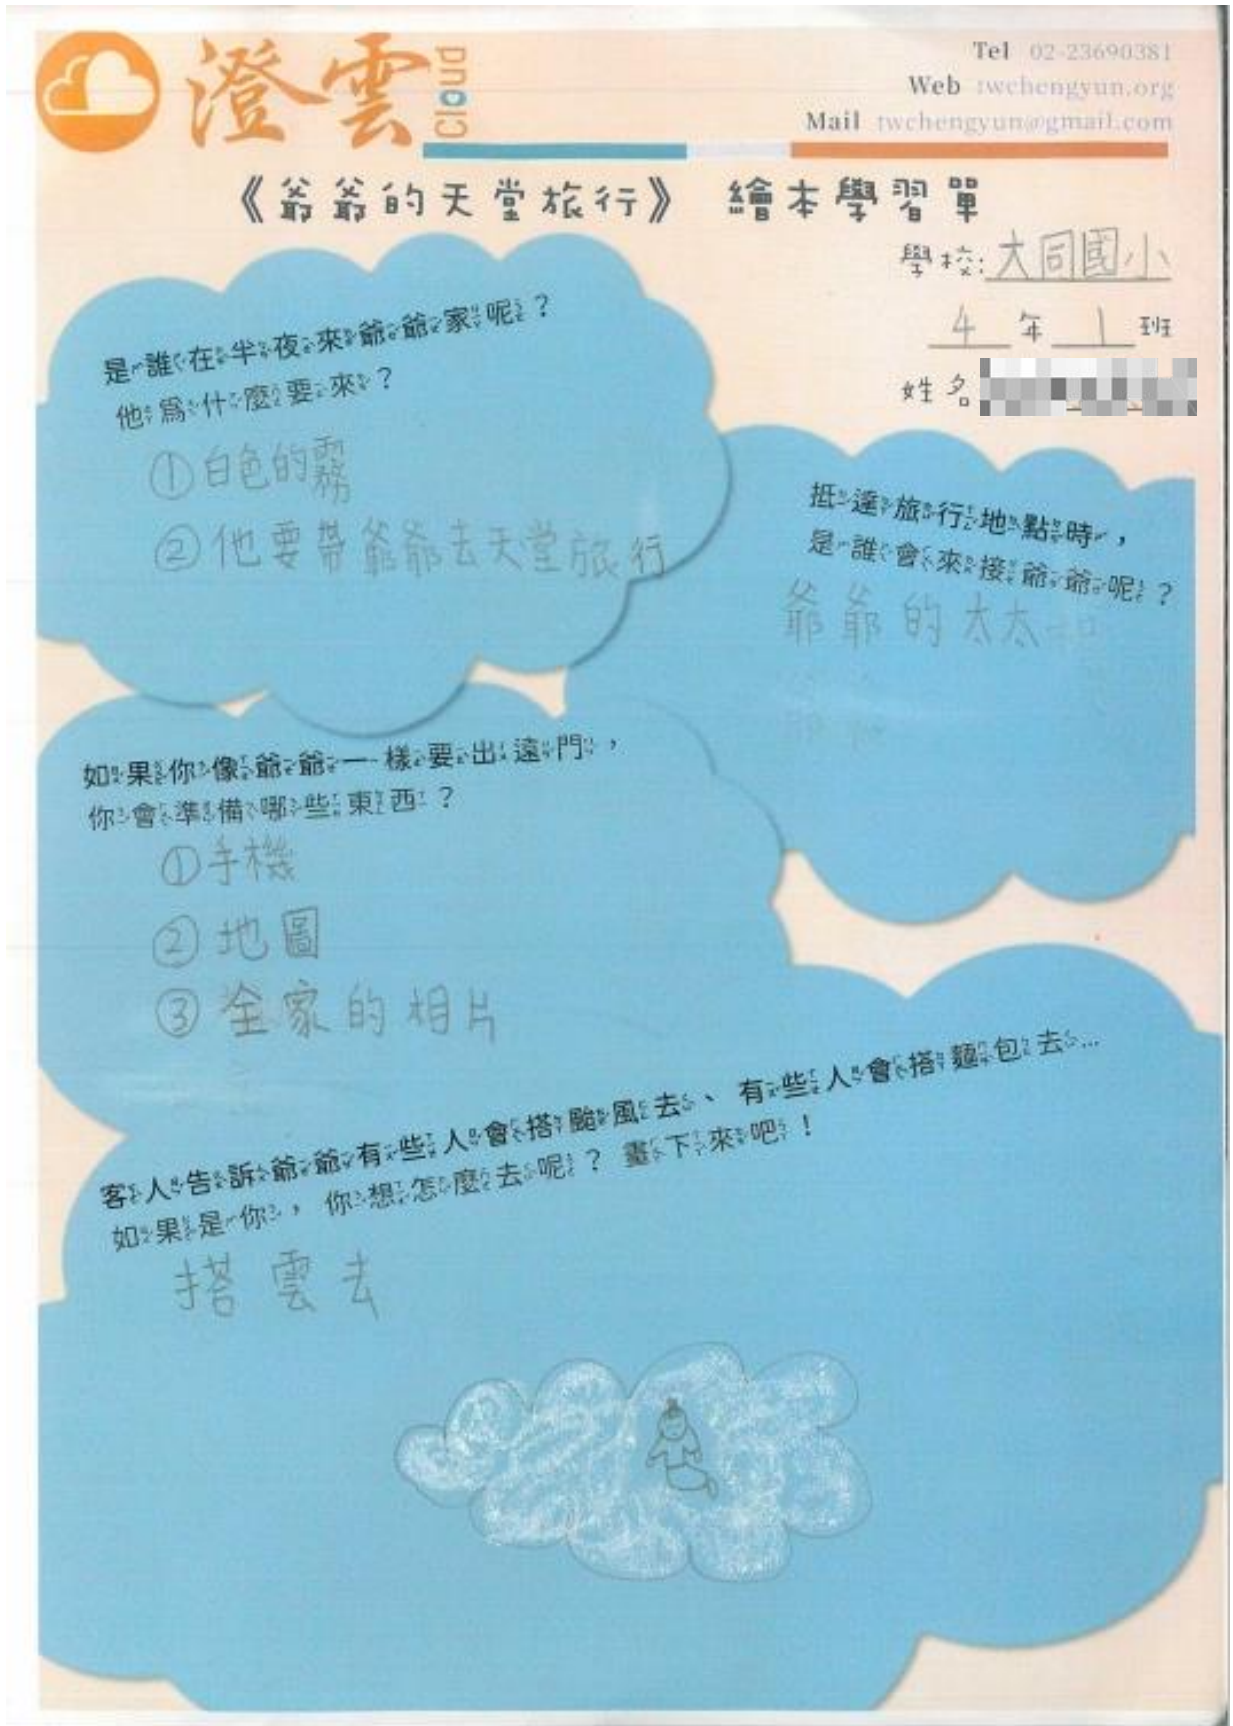 澄雲
Cloud
Tel 02-23690381
Web twchengyun.org
Mail twchengyun@gmail.com
《爺爺的天堂旅行》 繪本學習單
學校:大同國小
4年1班
姓名
是誰在半夜來爺爺家呢？
他為什麼要來？
①白色的霧
②他要帶爺爺去天堂旅行
抵達旅行地點時，
是誰會來接爺爺呢？
爺爺的太太
如果你像爺爺一樣要出遠門，
你會準備哪些東西？
①手機
②地圖
③全家的相片
客人告訴爺爺有些人會搭颱風去、有些人會搭麵包去...
如果是你，你想怎麼去呢？畫下來吧！
搭雲去